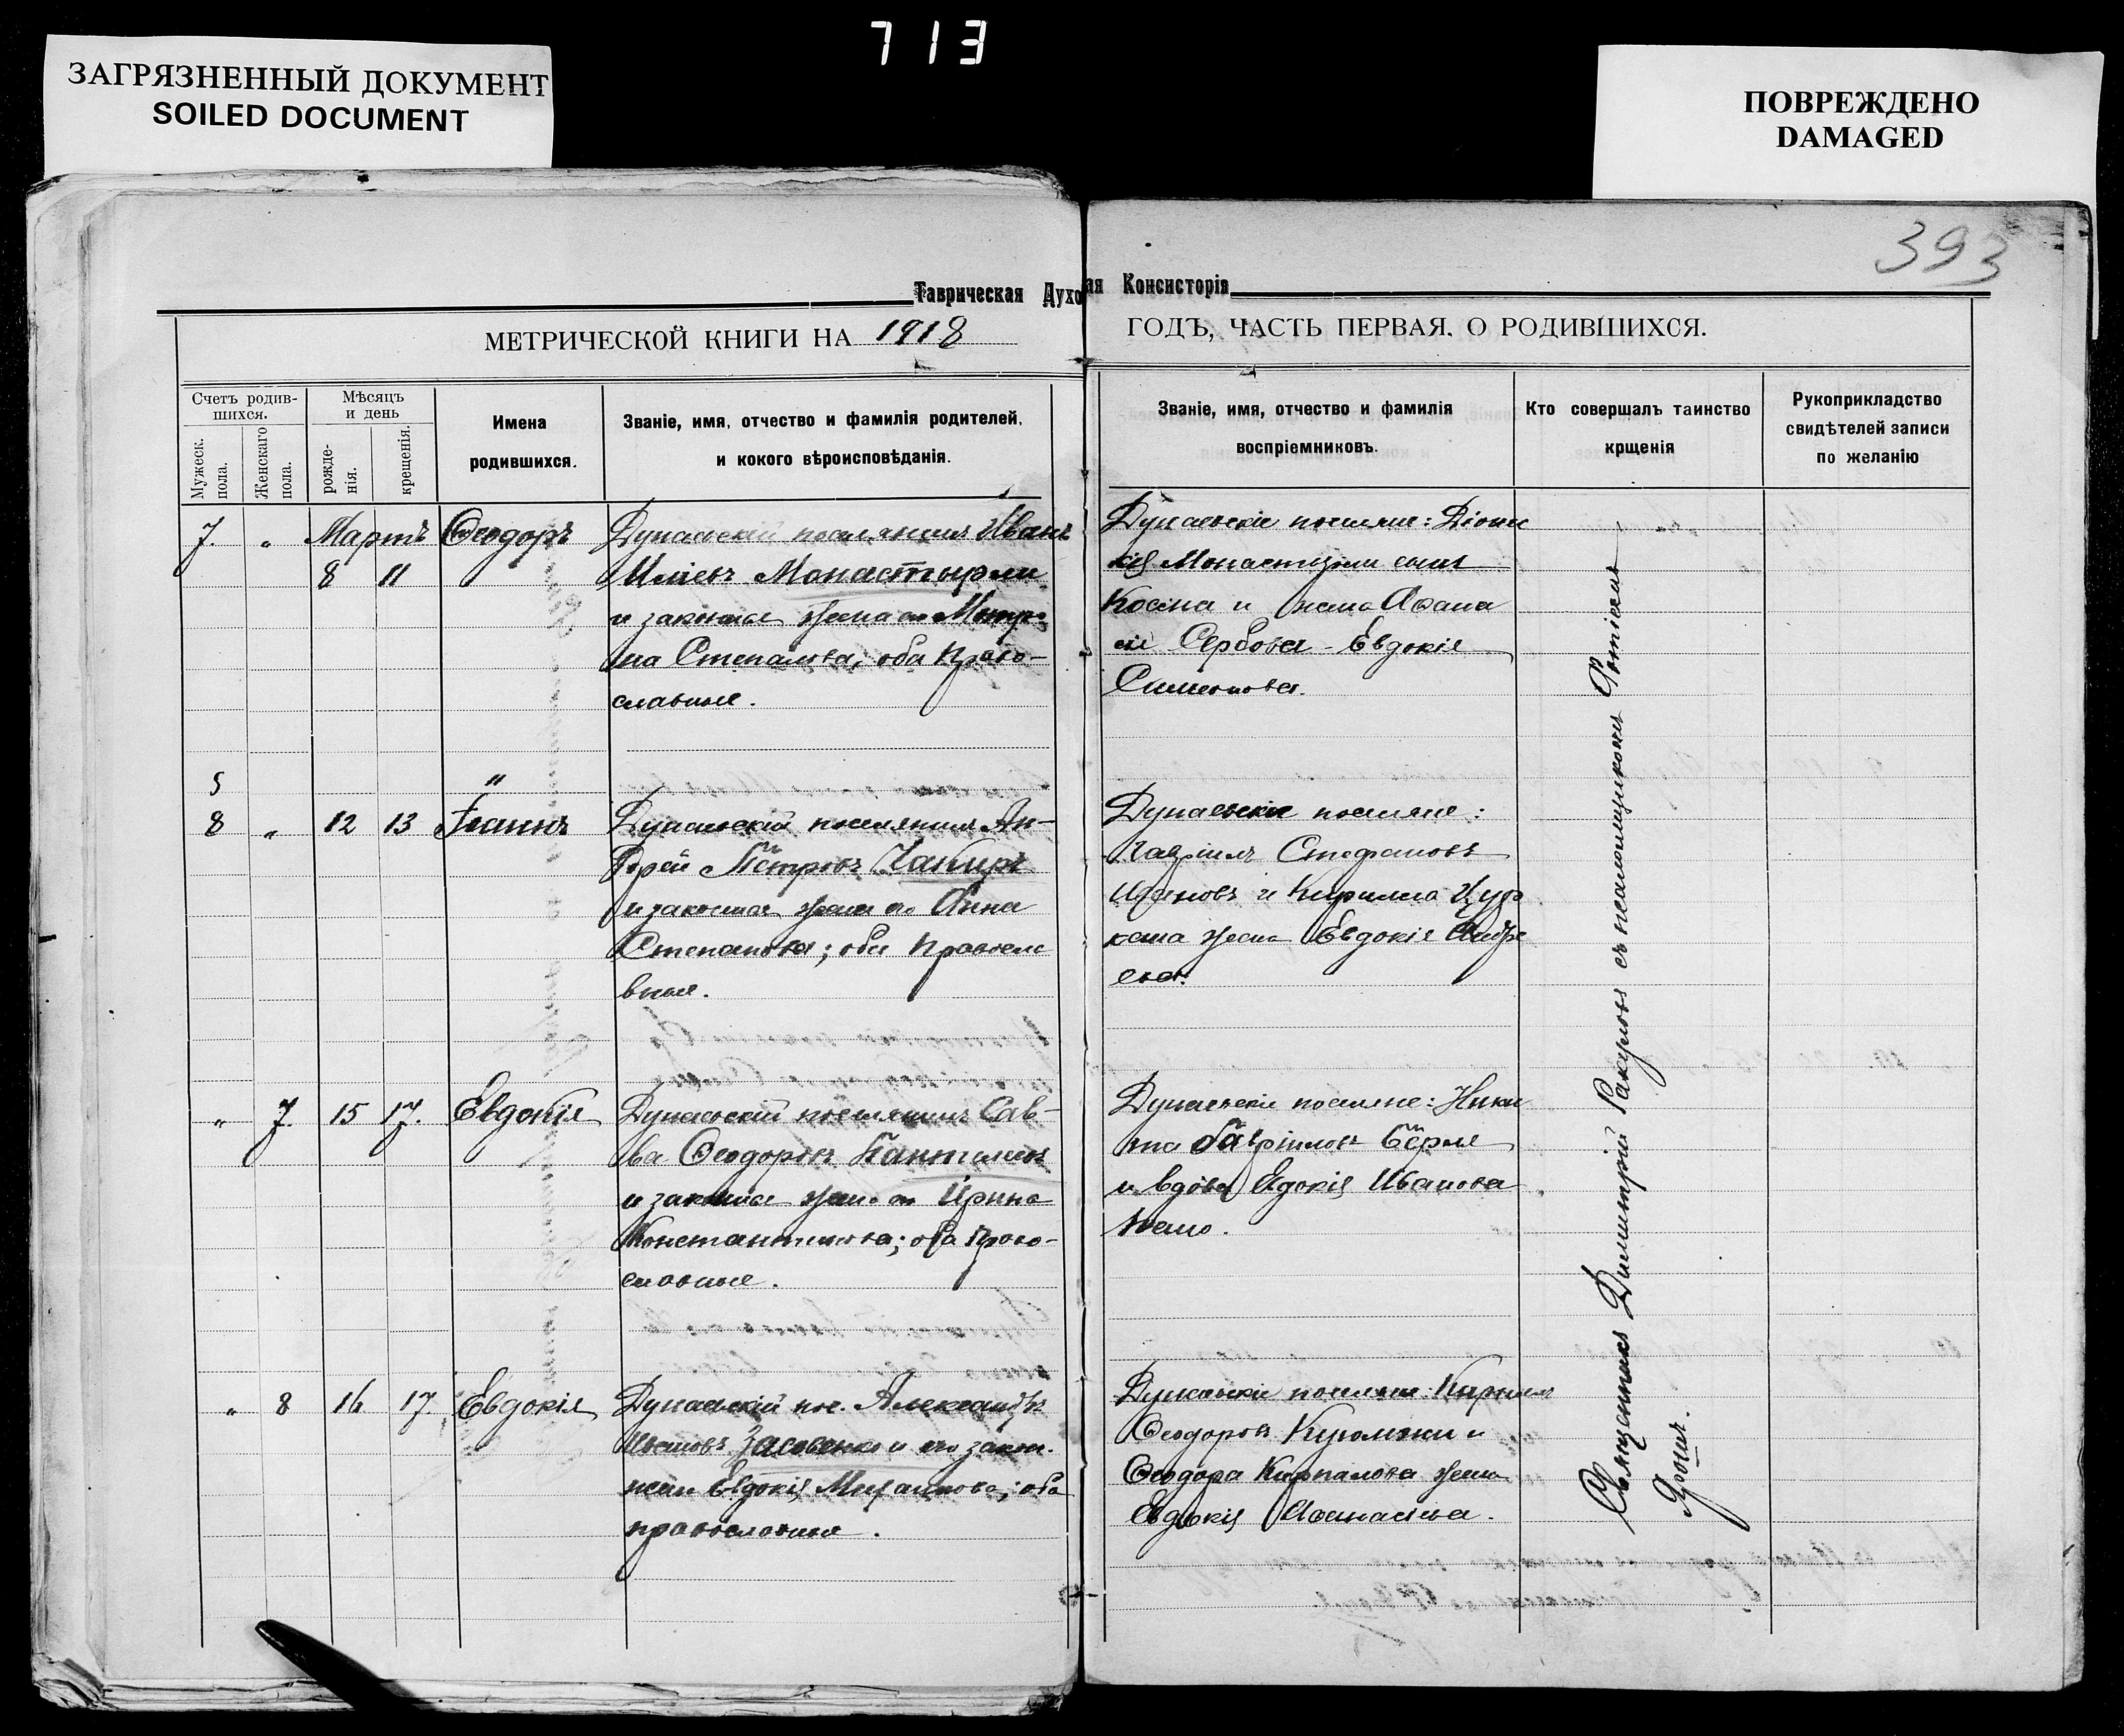 713
ЗАГРЯЗНЕННЫЙ ДОКУМЕНТ
SOILED DOCUMENT
ПОВРЕЖДЕНО
DAMAGED
393
Таврическая Духо
ая Консисторія
МЕТРИЧЕСКОЙ КНИГИ НА 1918
ГОДЪ, ЧАСТЬ ПЕРВАЯ. О РОДИВШИХСЯ.
Счетъ родив-
шихся.
Мужеск.
пола.
Женскаго
пола.
Мѣсяцъ
и день
рожде-
нія.
крещенія.
Имена
родившихся.
Званіе, имя, отчество и фамилія родителей,
и кокого вѣроисповѣданія.
Званіе, имя, отчество и фамилія
воспріемниковъ.
Кто совершалъ таинство
крщенія
Рукоприкладство
свидѣтелей записи
по желанію
7. " Мартъ Ѳеодоръ
8 11
Дунаевскій поселянинъ Иванъ
Иліевъ Монастырли
и законная жена его Матро-
на Степанова; оба право-
славные.
Дунаевскіе поселяне: Діони
сій Монастырли сынъ
Косьма и жена Аѳана
сія Сербова - Евдокія
Симеонова.
8 " 12 13 Іоаннъ
Дунаевскій поселянинъ Ан-
дрей Петровъ Чакиръ
и законная жена его Анна
Степанова; оба правосла
вные.
Дунаевскіе поселяне:
Гавріилъ Стефановъ
и Кирилла
жена Евдокія Андре
ева.
" 7. 15 17. Евдокія
Дунаевскій поселянинъ Сав-
ва Ѳеодоровъ Пантелеев
и законная жена его Ирина
Константинова; оба право-
славные.
Дунаевскіе поселяне: Ники
та Гавріиловъ
и вдова Евдокія Иванова
" 8 16 17. Евдокія
Дунаевскій пос. Александръ
Засовенко и его закон.
жена Евдокія Михаилова; оба
православные.
Дунаевскіе поселяне: Кириллъ
Ѳеодоровъ и
Ѳеодора жена
Евдокія Аѳанасіева.
Священникъ Димитрій съ псаломщикомъ